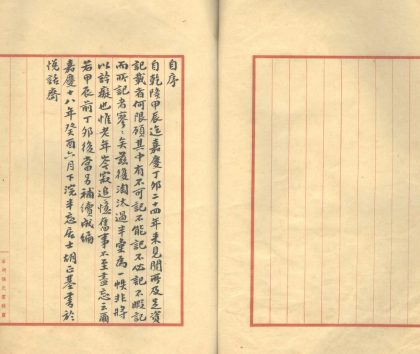 自序
自乾隆甲辰迄嘉慶丁卯二十四年来見聞所及足資
記載者何限顧其中有不可記不能記不必記不暇記
而所記者寥寥矣茲復淘汰過半彙為一帙非將
以詅癡也惟老年岑寂追憶舊事不至盡忘云爾
若甲辰前丁卯後當另補續成編
嘉慶十八年癸酉六月下浣半忘居士胡正基書於
悦話齋